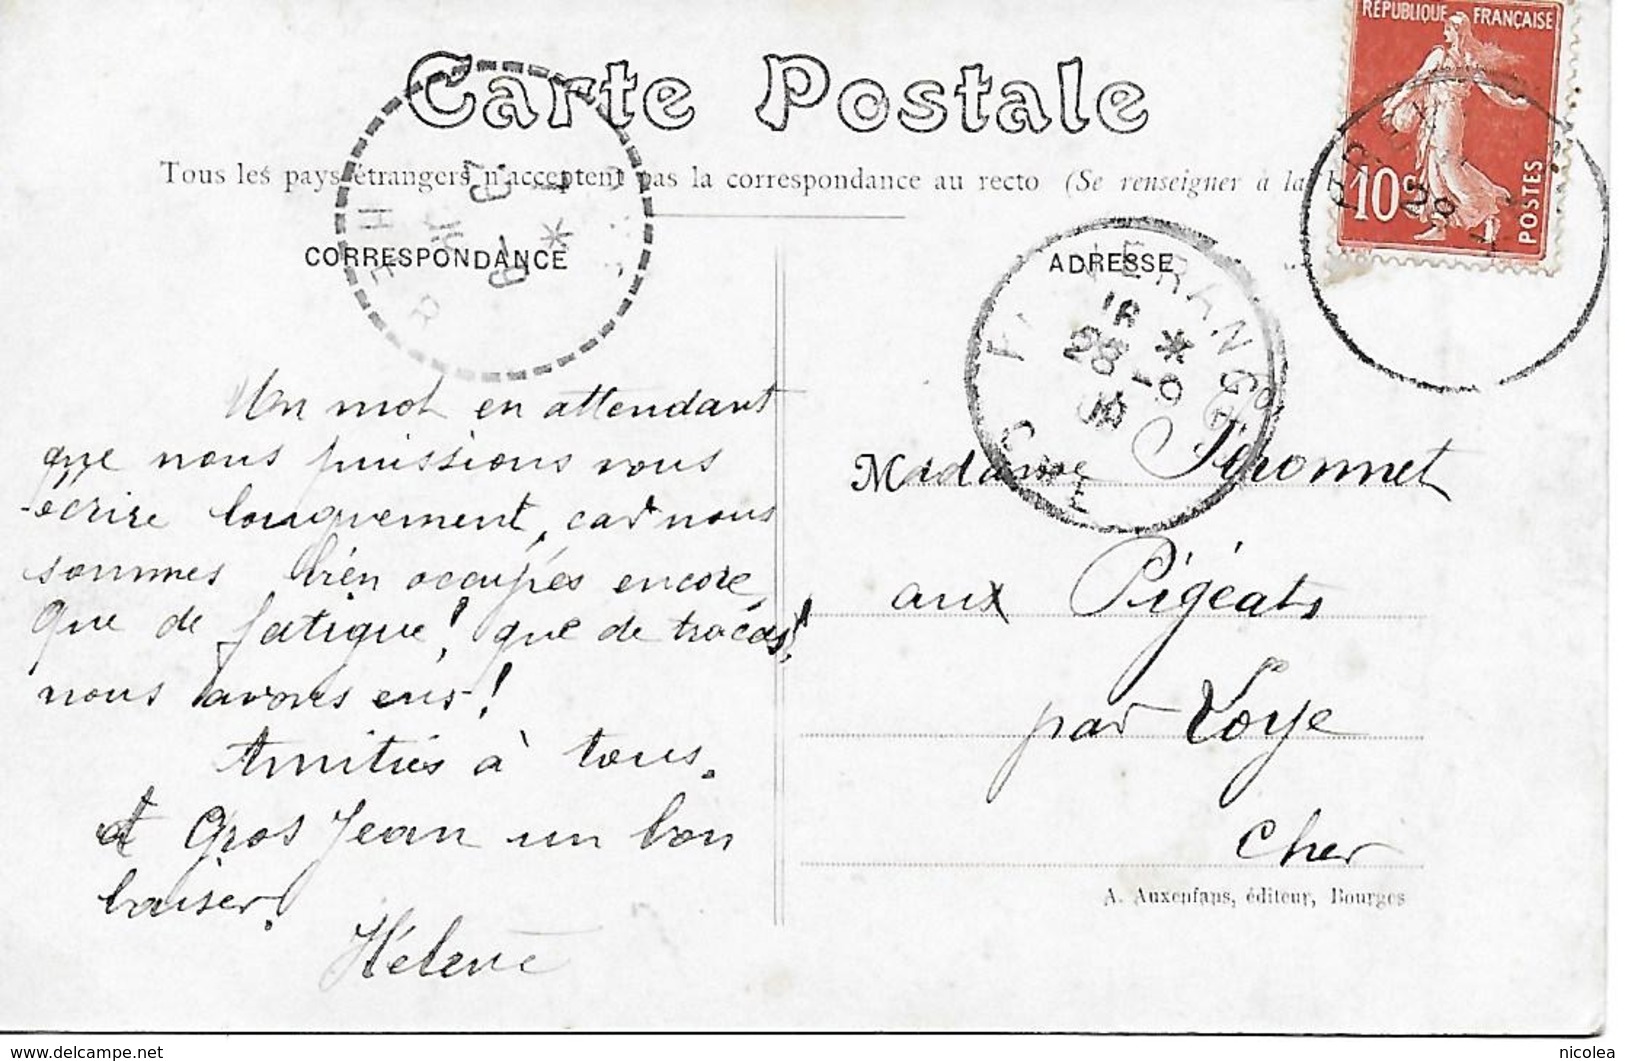 RÉPUBLIQUE FRANÇAISE
10c
POSTES
Carte Postale
Tous les pays étrangers n'acceptent pas la correspondance au recto (Se renseigner à la
CORRESPONDANCE
ADRESSE
HER
28
Un mot en attendant
que nous puissions vous
écrire longuement, car nous
sommes bien occupés encore
Que de fatigue! que de tracas
nous avons eus!
Amitiés à tous.
et Gros Jean un bon
baiser.
Hélène
Madame Péronnet
aux Pigéats
par Loye
Cher
A. Auxenfans, éditeur, Bourges
nicolea
www.delcampe.net